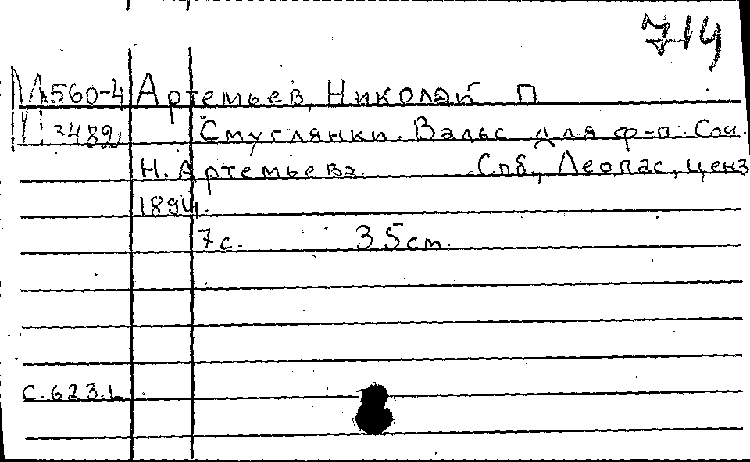 714
М560-4 Артемьев, Николай П
3489 Смуглянки. Вальс для ф-п. Соч.
Н. Артемьева. Спб., Леопас, ценз
1894.
7 с. 35 cm.
с.623.